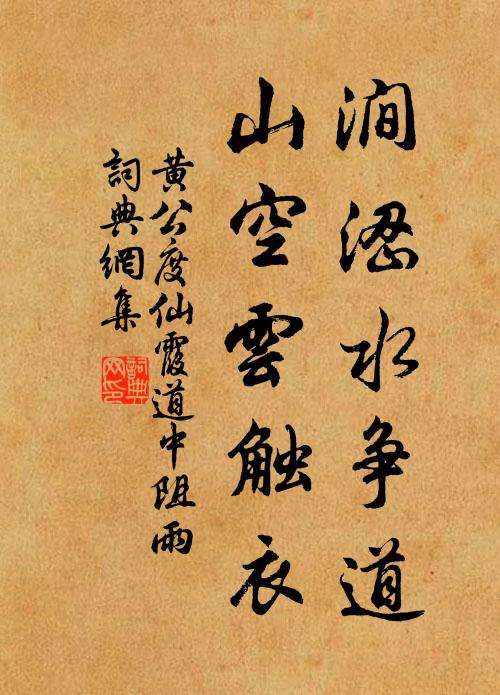 澗溢水争道
山空雲触衣
黄公度仙霞道中阻雨
詞典網集
詞典网印